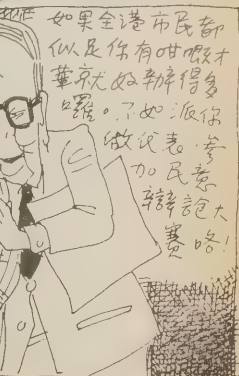 如果全港市民都
似足你有咁嘅才
華就好辦得多
囉。不如派你
做代表參
加民意
辯論大
賽咯!